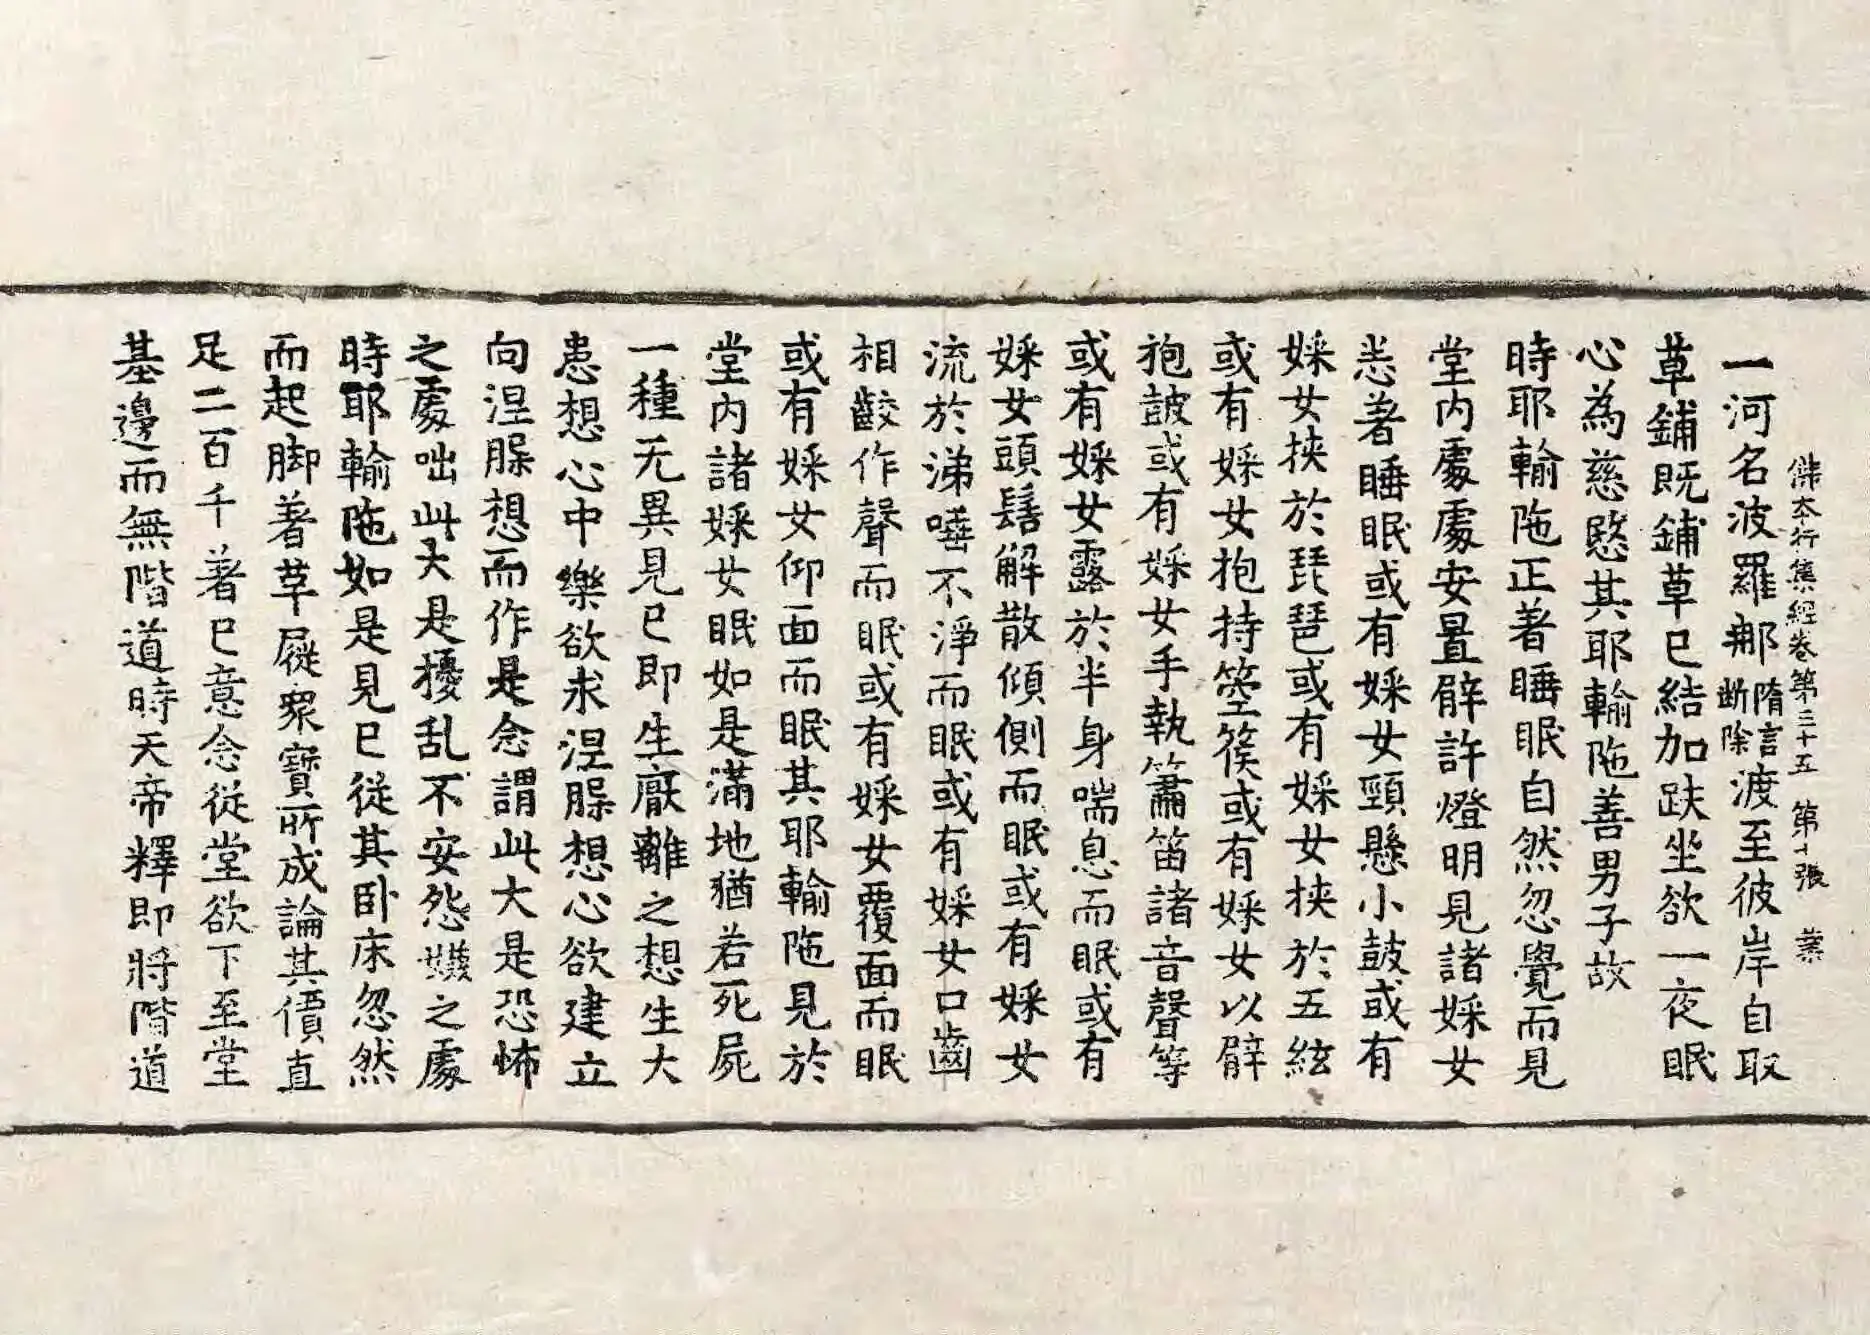 佛本行集經卷第三十五 第十張 藁
一河名波羅那隋言断除渡至彼岸自取
草鋪既鋪草已結加趺坐欲一夜眠
心為慈愍其耶輸陁善男子故
時耶輸陁正著睡眠自然忽覺而見
堂内處處安置臂許燈明見諸婇女
恙著睡眠或有婇女頸懸小鼓或有
婇女挾於琵琶或有婇女挾於五絃
或有婇女抱持箜篌或有婇女以臂
抱詖或有婇女手執簫笛諸音聲等
或有婇女露於半身喘息而眠或有
婇女頭髻解散傾側而眠或有婇女
流於涕唾不淨而眠或有婇女口齒
相齩作聲而眠或有婇女覆面而眠
或有婇女仰面而眠其耶輸陁見於
堂内諸婇女眠如是滿地猶若死屍
一種无異見已即生厭離之想生大
患想心中樂欲求涅槃想心欲建立
向涅槃想而作是念謂此大是恐怖
之處咄此大是擾乱不安怨嫌之處
時耶輸陁如是見已從其卧床忽然
而起脚著草屣眾寶所成論其價直
足二百千著已意念從堂欲下至堂
基邊而無階道時天帝釋即將階道